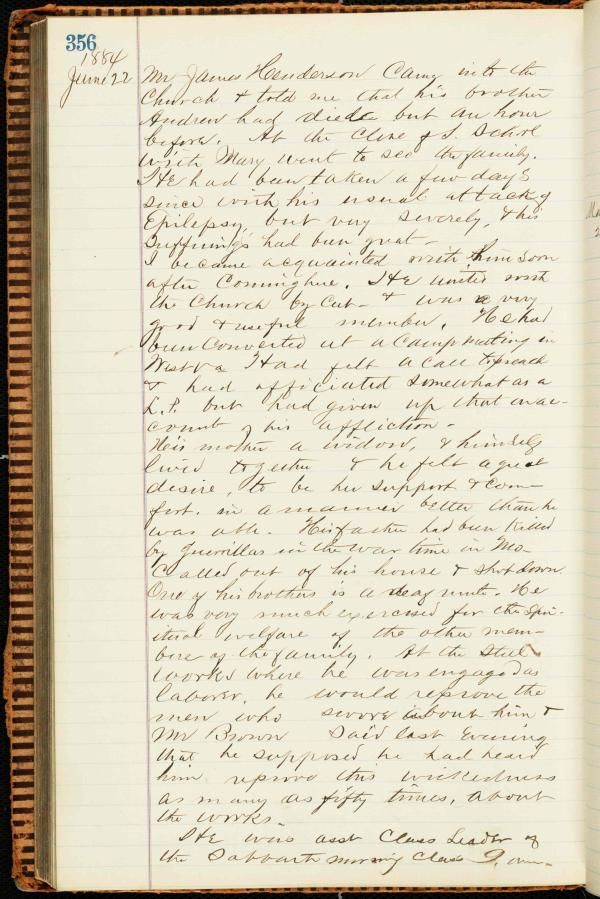 356
1884
June 22 Mr James Henderson Came into the
Church & told me that his brother
Andrew had died but an hour
before. At the Close of S. School
with Mary went to see the family.
He had been taken a few days
since with his usual attack of
Epilepsy, but very severely, & his
Sufferings had been great -
I became acquainted with him soon
after Coming here. He united with
the Church by Cert - & was a very
good & useful member. He had
been Converted at a Camp meeting in
West Va Had felt a call to preach
& had officiated somewhat as a
L.P. but had given up that on ac-
count of his affliction -
His mother a widow, & himself
lived together & he felt a great
desire, to be her support & com-
fort. in a manner better than he
was able. His father had been killed
by guerrillas in the war time in Mo-
Called out of his house & shot down
One of his brothers is a deaf mute. He
was very much exercised for the Spir-
itual welfare of the other mem-
bers of the family. At the Steel
works where he was engaged as
laborer, he would reprove the
men who swore about him &
Mr Brown Said last Evening
that he supposed he had heard
him reprove this wickedness
as many as fifty times, about
the works -
He was asst Class Leader of
the Sabbath morning Class